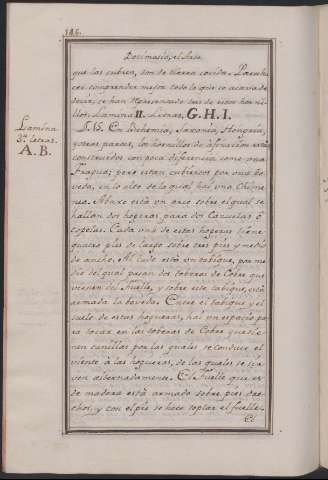 186.
Docimasia, el Arte
que las cubren, son de tierra cocida. Para ha-
cer comprender mejor todo lo que se acaba de
decir, se han demostrado tres de estos horni-
llos. Lamina II. Letras, G. H. I.
Lamina
3ª letras
A. B.
§. 15. En Bohemia, Saxonia, Hongria,
y otras partes, los hornillos de afinacion estan
construidos con poca diferencia como una
Fragua; pero estan cubiertos por una bo-
veda, en lo alto de la qual hai una Chime-
nea. Abaxo está un arco sobre el qual se
hallan dos hogeras para dos Cazuelas ô
copelas. Cada una de estas hogeras tiene
quatro pies de largo sobre tres pies y medio
de ancho. Al lado está un tabique, por me-
dio del qual pasan dos toberas de Cobre que
vienen del Fuelle, y sobre este tabique, está
armada la boveda. Entre el tabique y el
suelo de estas hogueras, hai un espacio pa-
ra tocar en las toberas de Cobre y mene-
ran canillas por las quales se conduce el
viento à las hogueras, de las quales se sir-
ven alternadamente. El Fuelle que es
de madera está armado sobre pies dere-
chos, y con el pie se hace soplar el fuelle.
El